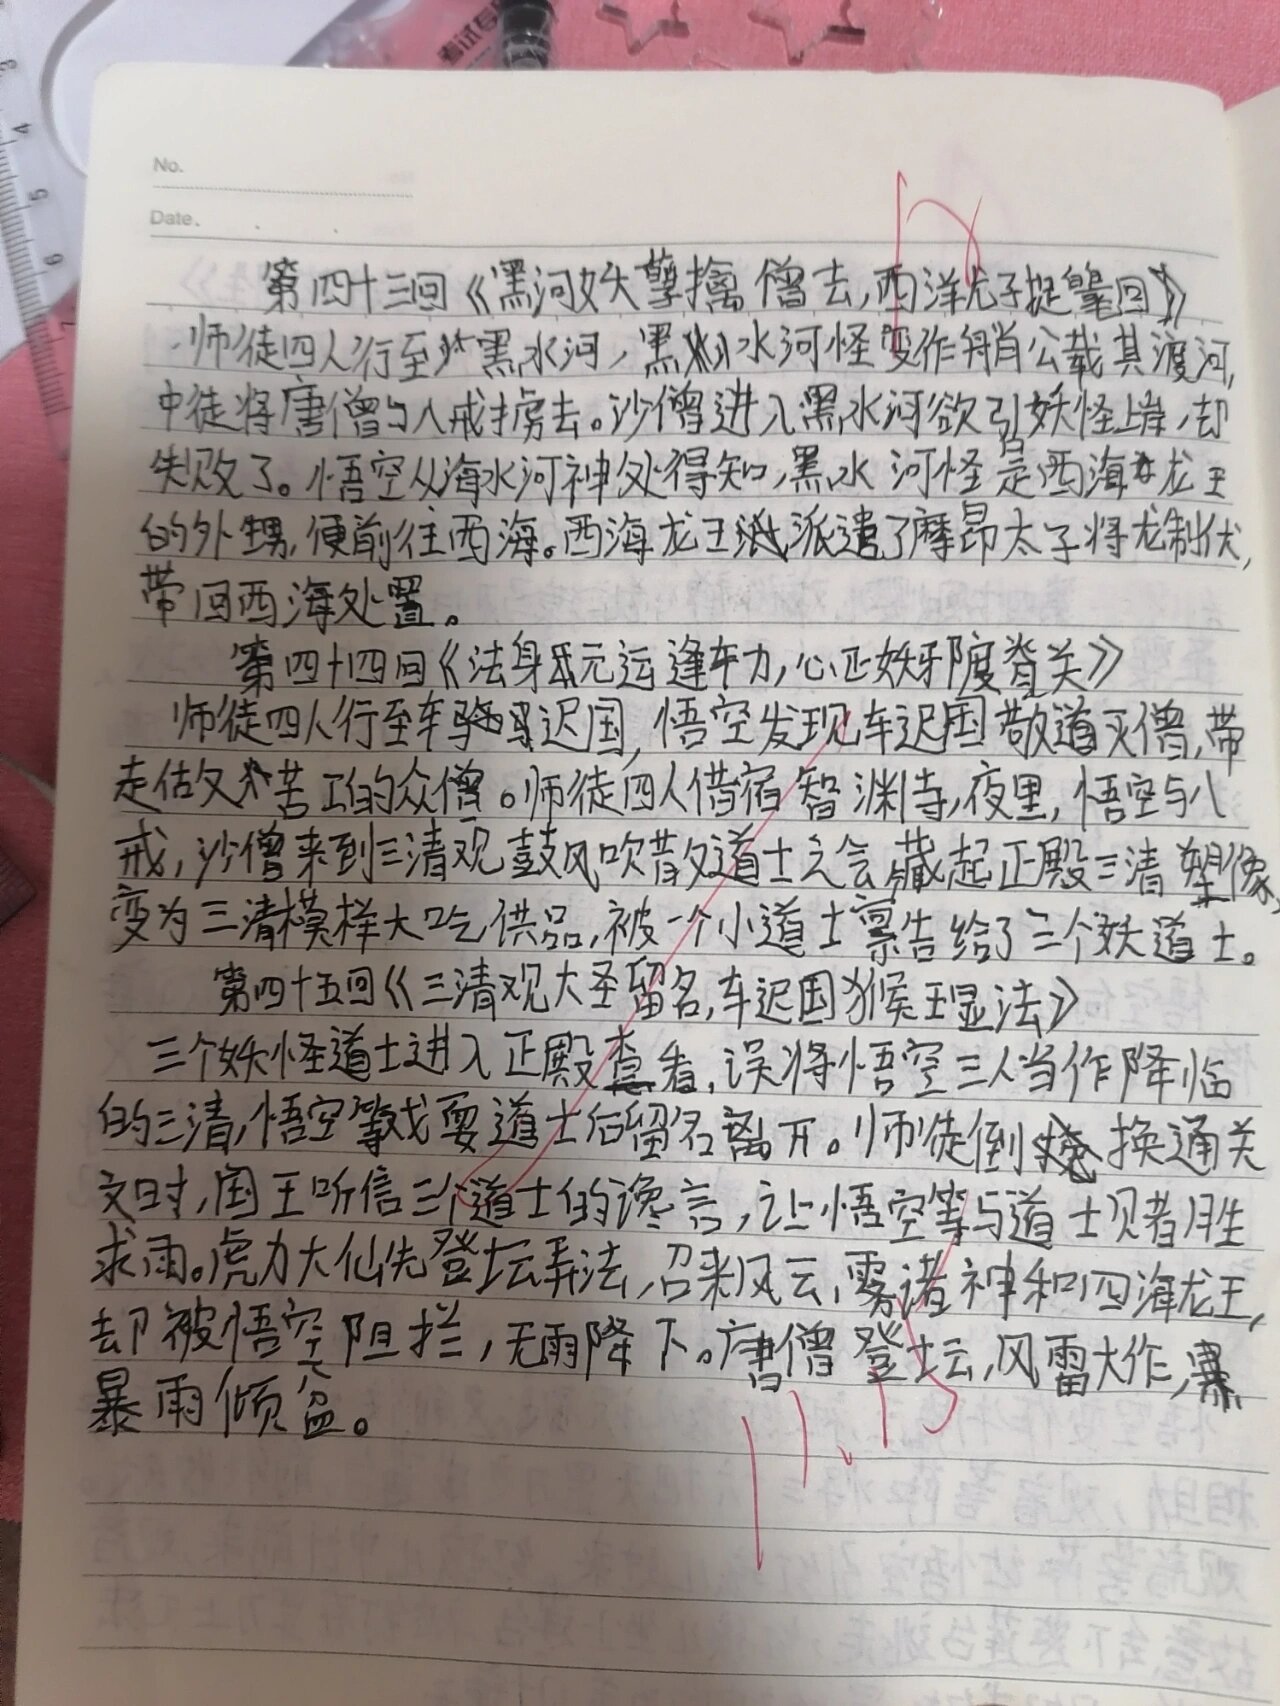 考试专
3
4
5
6
No.
Date.
第四十三回《黑河妖孽擒僧去,西洋龙子捉鼍回》
师徒四人行至黑水河,黑水河怪变作艄公载其渡河,
中徒将唐僧与八戒掳去。沙僧进入黑水河欲引妖怪上岸,却
失败了。悟空从海水河神处得知,黑水河怪是西海龙王
的外甥,便前往西海。西海龙王派遣了摩昂太子将龙制伏,
带回西海处置。
第四十四回《法身元运逢车力,心正妖邪度脊关》
师徒四人行至车迟国,悟空发现车迟国敬道灭僧,带
走估父苦工的众僧。师徒四人借宿智渊寺,夜里,悟空与八
戒,沙僧来到三清观鼓风吹散道士之会,藏起正殿三清塑像,
变为三清模样大吃供品,被一个小道士禀告给了三个妖道士。
第四十五回《三清观大圣留名,车迟国猴王显法》
三个妖怪道士进入正殿查看,误将悟空三人当作降临
的三清,悟空等戏耍道士后留名离开。师徒倒换通关
文时,国王听信三个道士的谗言,让悟空等与道士贝者胜
求雨。虎力大仙先登坛弄法,召来风云,雾诸神和四海龙王,
却被悟空阻拦,无雨降下。唐僧登坛,风雷大作,
暴雨倾盆。
11.13